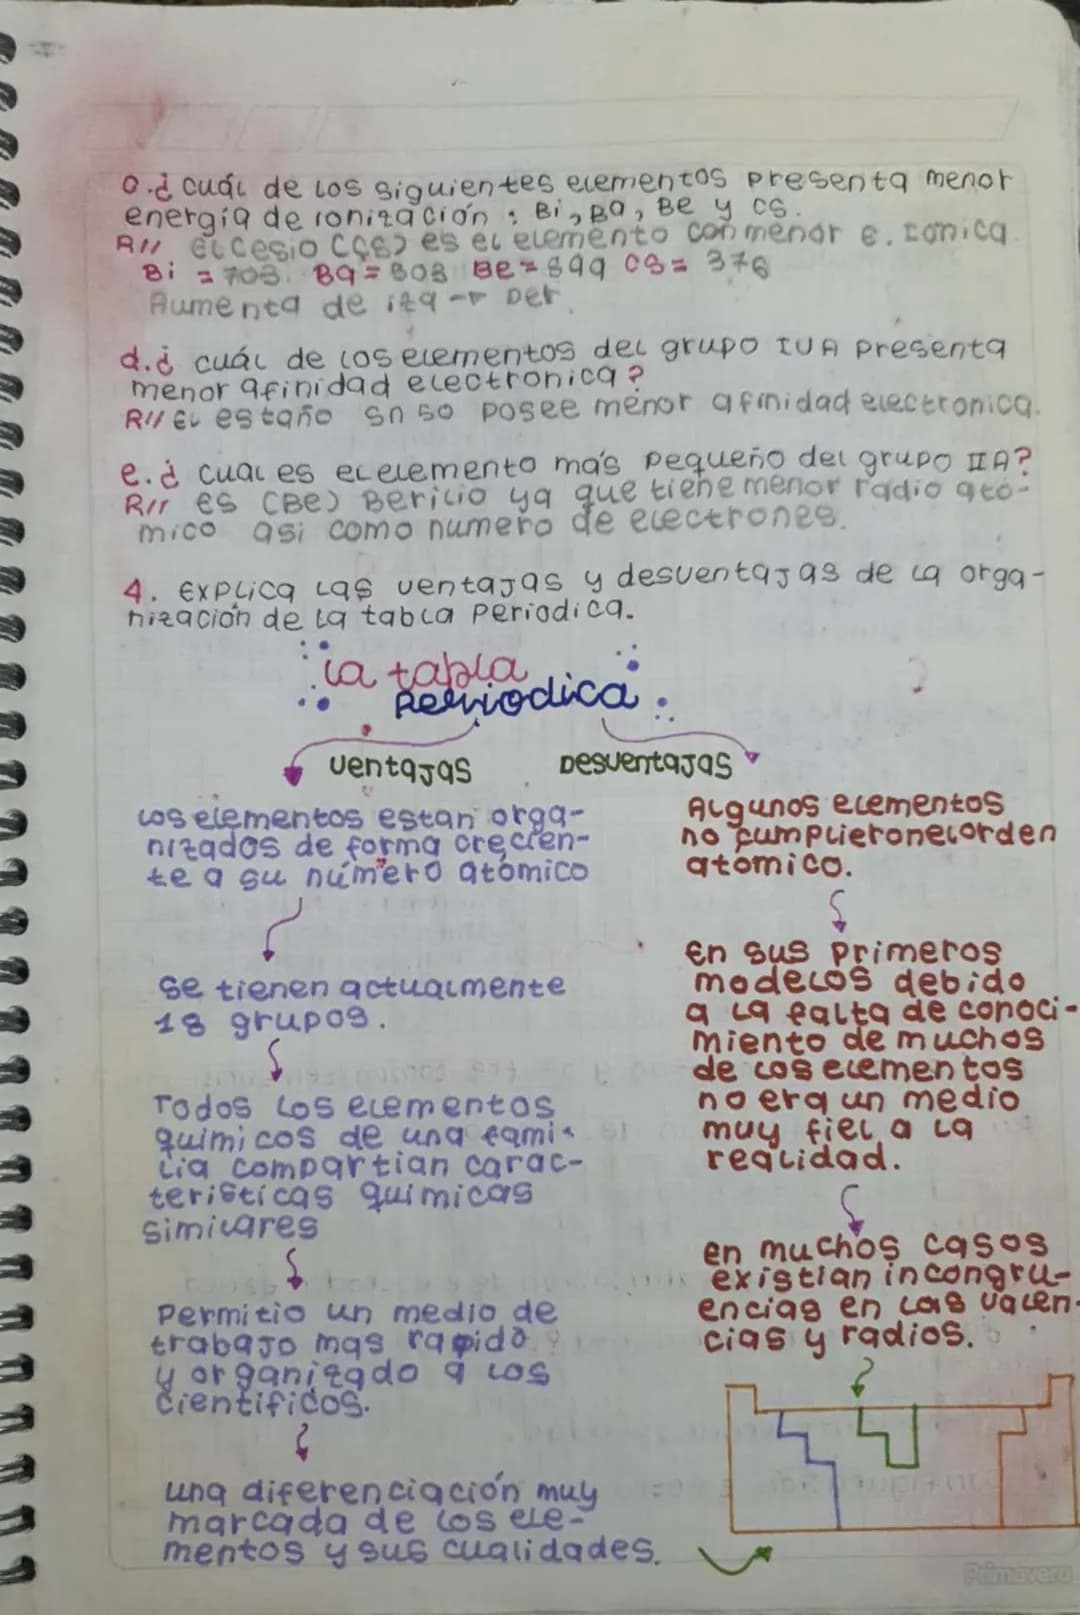 o.¿ cuál de los siguientes elementos presenta menor
energía de ionización : Bi, Ba, Be y Cs.
R// El cesio (Cs) es el elemento con menor e. ionica
Bi = 703. Ba = 503 Be = 899 Cs = 376
Aumenta de izq → Der.
d.¿ cuál de los elementos del grupo IVA presenta
menor afinidad electronica?
R// El estaño Sn 50 posee menor afinidad electronica.
e.¿ cual es el elemento más pequeño del grupo IIA?
R// es (Be) Berilio ya que tiene menor radio ató-
mico asi como numero de electrones.
4. Explica las ventajas y desventajas de la orga-
nización de la tabla periodica.
la tabla
Periodica
Ventajas
Desventajas
los elementos estan orga-
nizados de forma crecien-
te a su número atómico
Se tienen actualmente
18 grupos.
Todos los elementos
quimicos de una fami-
lia compartian carac-
teristicas quimicas
similares
Permitio un medio de
trabajo mas rapido
y organizado a los
cientificos.
una diferenciación muy
marcada de los ele-
mentos y sus cualidades.
Algunos elementos
no cumplieron el orden
atómico.
En sus primeros
modelos debido
a la falta de conoci-
miento de muchos
de los elementos
no era un medio
muy fiel a la
realidad.
en muchos casos
existian incongru-
encias en las valen-
cias y radios.
Primavera